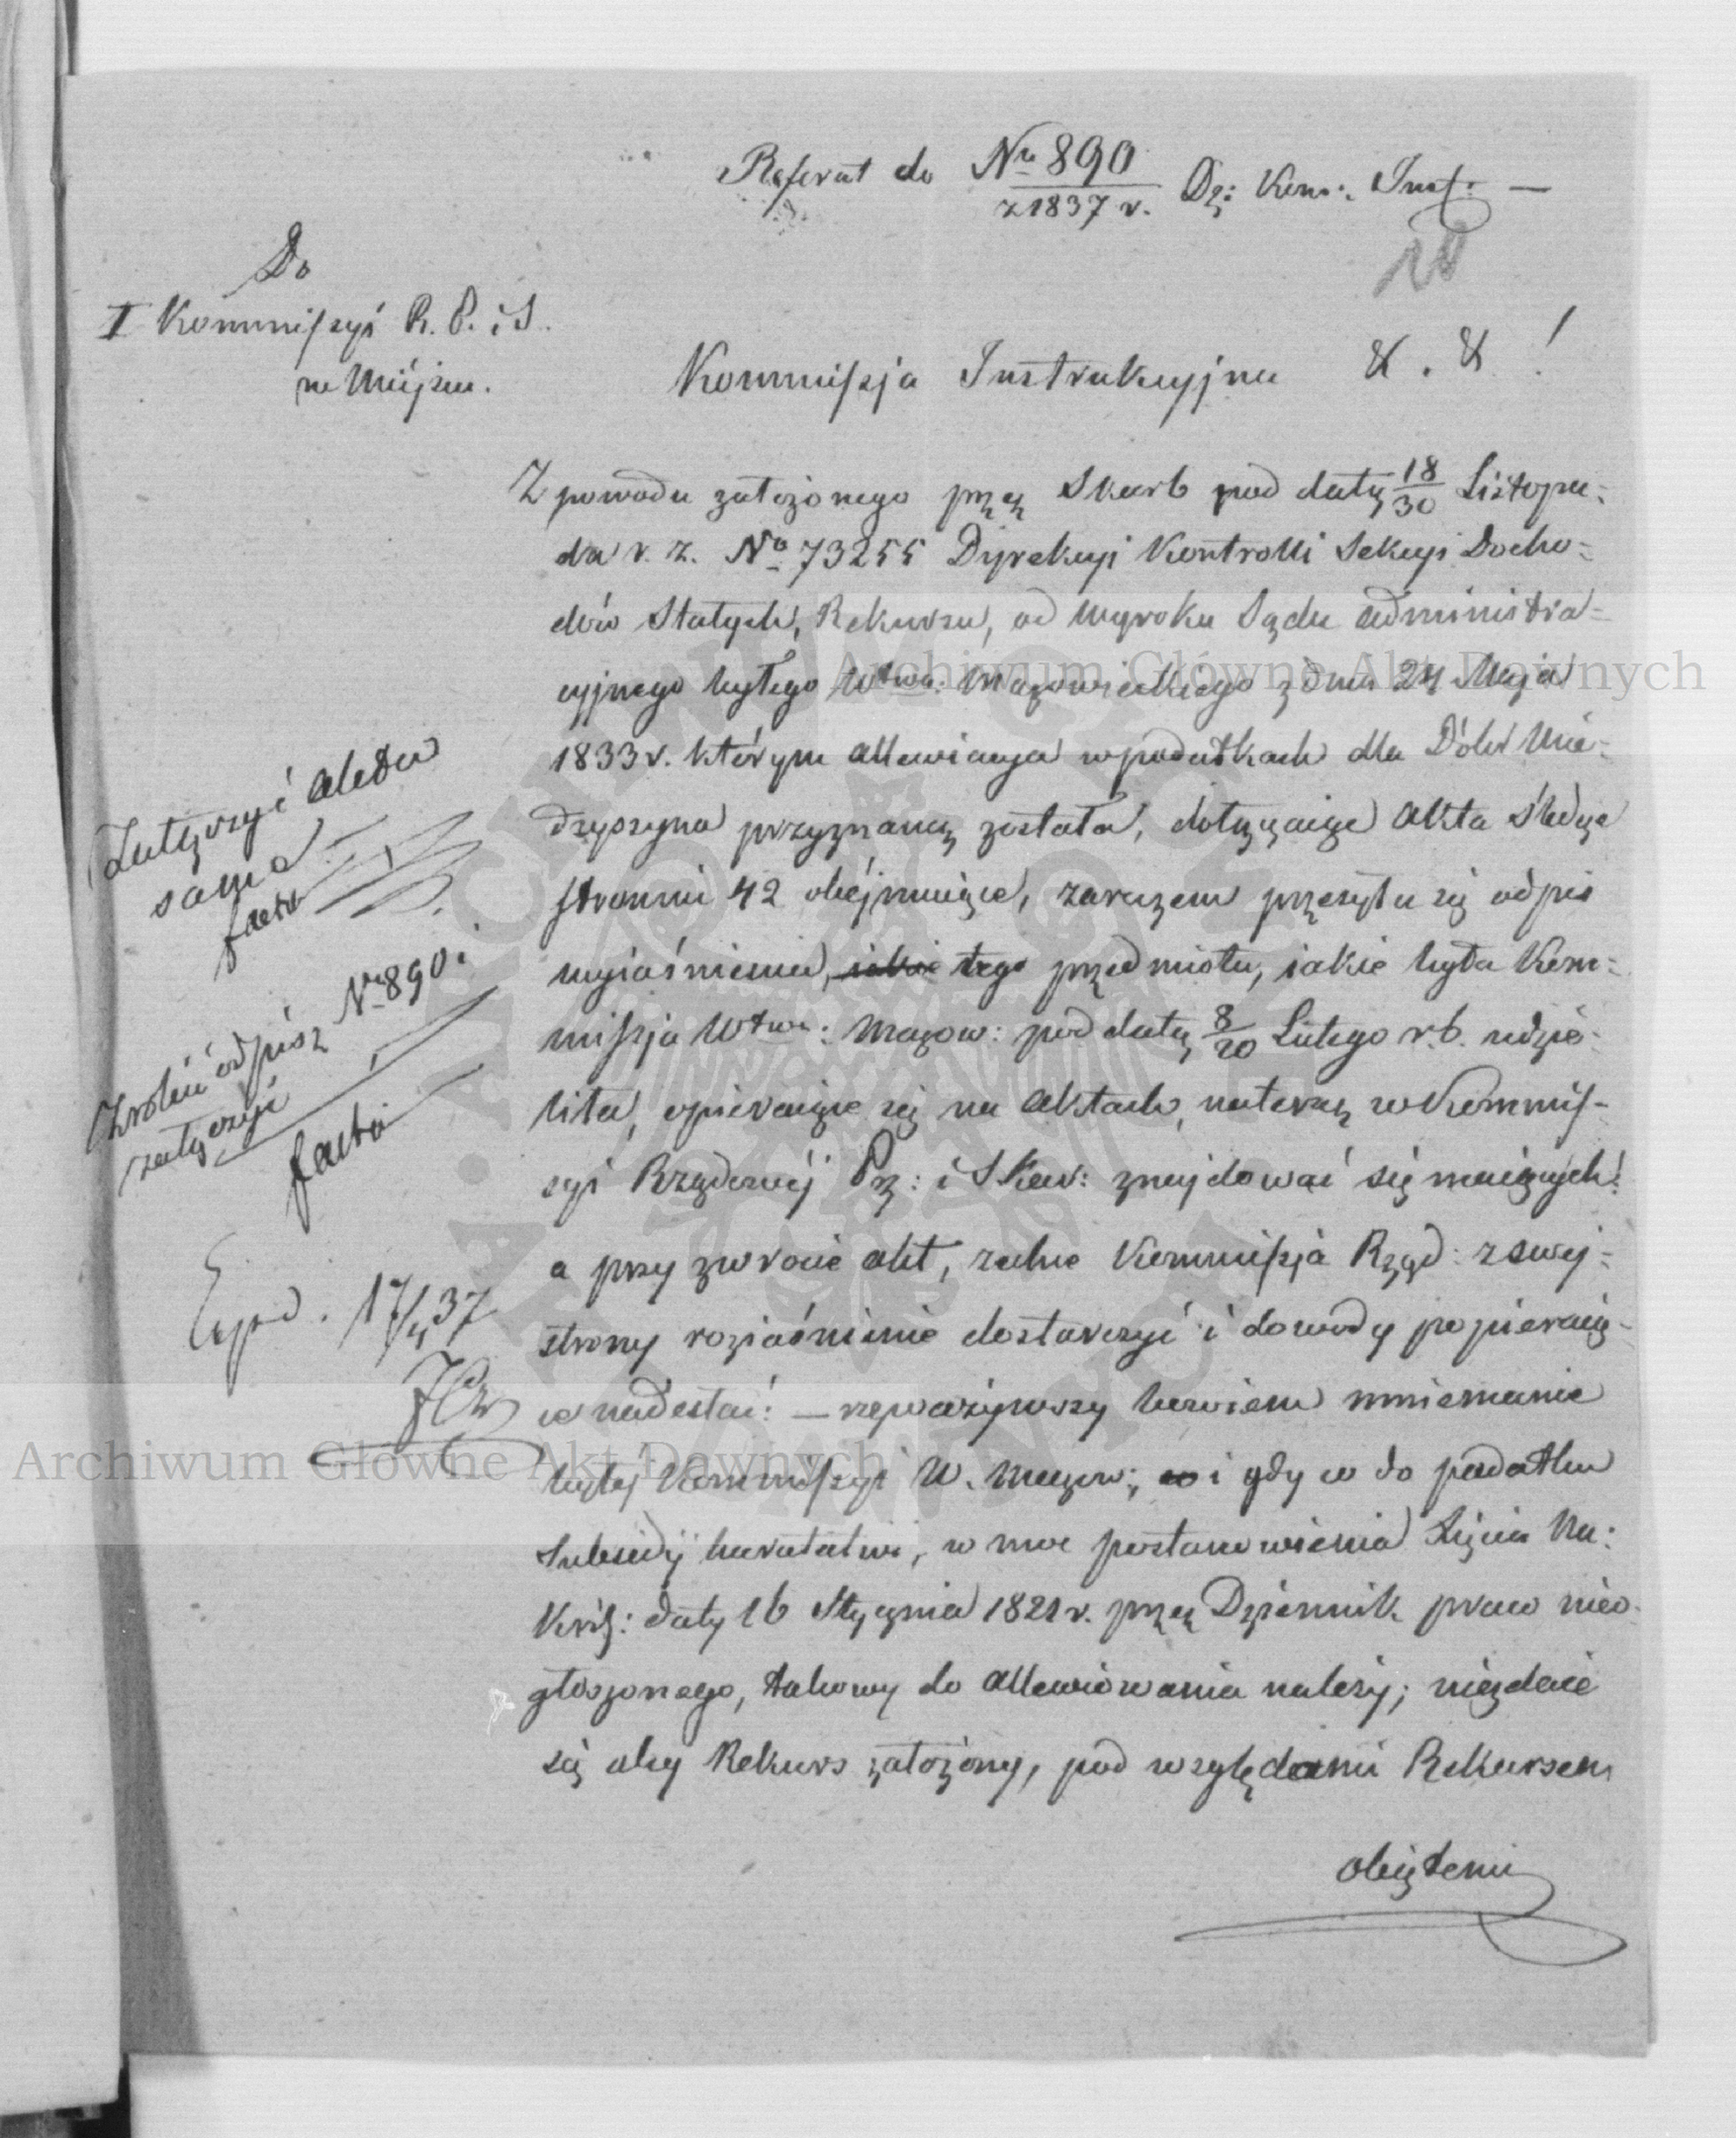 Referat do No 890 z 1837 r. Dz: Kom: Inst: —
20
Do
I Kommissyi R. P. i S.
na Miéjscu.
Kommissja Instrukcyjna & . & !
Z powodu założonego przez Skarb pod datą 18/30 Listopa:
da r. z. No 73255 Dyrekcyi Kontrolli Sekcyi Docho=
dów Stałych, Rekursu, od wyroku Sądu administra=
cyjnego byłego Wtwa: Mazowieckiego z dnia 24 Maja
1833 r. którym allewiacya w podatkach dla Dóbr Mie=
dzyszyna przyznaną została, dotyczące akta śledcze
stronnic 42 obéjmuiące, zarazem przesyła się odpis
wyiaśnienia, iakie tego przedmiotu, iakie była Kom=
missja Wtwa: Mazow: pod datą 8/20 Lutego r. b. udzie=
liła, opieraiąc się na aktach, nateraz w Kommis=
syi Rządowéj Prz: i Skar: znajdować się maiących:
a przy zwrocie akt, zechce Kommissja Rząd: z swej=
strony roziaśnienie dostarczyć i dowody popieraią=
ce nadesłać: — zepważywszy bowiem mniemanie
byłéj Kommissyi W. Mazow:, co i gdy co do podatku
Subsidij charatativi, w moc postanowienia Xięcia Na:
Kró: daty 16 Stycznia 1821 r. przez Dziennik praw nieo=
głoszonego, takowy do allewiowania należy; niezdaie
się aby Rekurs założony, pod względami Rekursem
obiętemi
Załączyć akta
same
facta
Zrobić odpisz No 890 i
załączyć
facta
Exped. 17/4 37
Archiwum Główne Akt Dawnych
Archiwum Główne Akt Dawnych